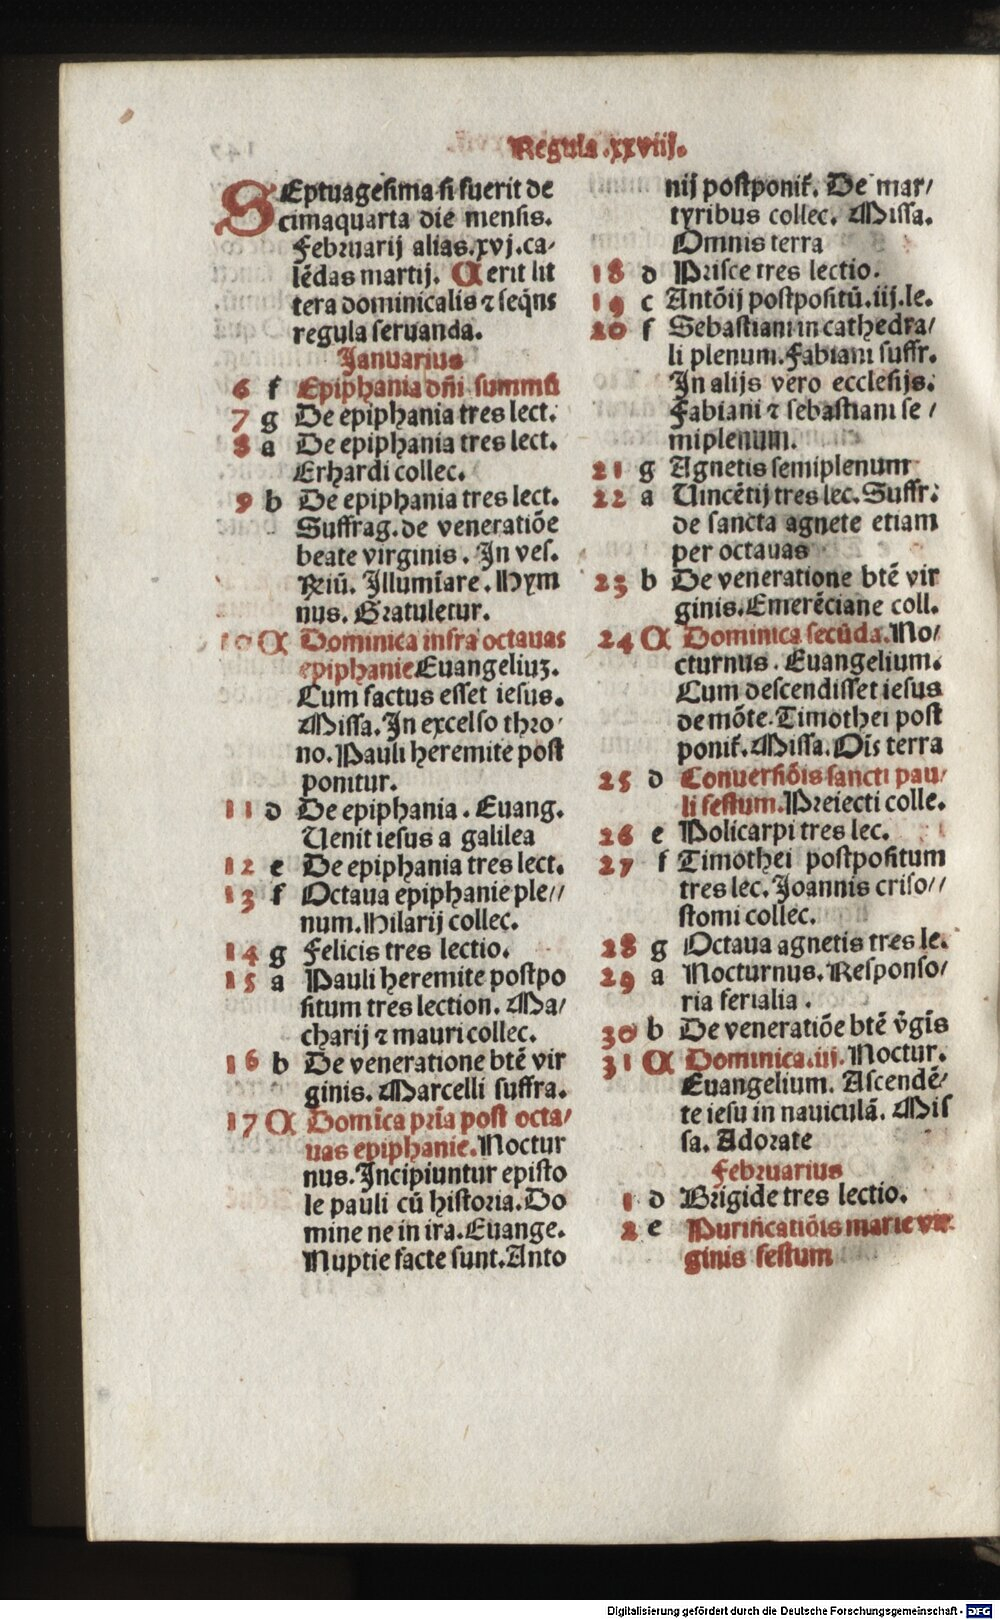 Regula .xxviij.
SEptuagesima si fuerit de
cimaquarta die mensis.
Februarij alias .xvj. ca-
lēdas martij. A erit lit
tera dominicalis ⁊ seq̄ns
regula seruanda.
Januarius
6 f Epiphania dn̄i summū
7 g De epiphania tres lect.
8 a De epiphania tres lect.
Erhardi collec.
9 b De epiphania tres lect.
Suffrag. de veneratiōe
beate virginis. In ves.
Riū. Illumīare. Hym
nus. Gratuletur.
10 A Dominica infra octauas
epiphanie Euangeliuꝫ.
Cum factus esset iesus.
Missa. In excelso thro-
no. Pauli heremite post
ponitur.
11 d De epiphania. Euang.
Uenit iesus a galilea
12 e De epiphania tres lect.
13 f Octaua epiphanie ple//
num. Hilarij collec.
14 g Felicis tres lectio.
15 a Pauli heremite postpo
situm tres lection. Ma/
charij ⁊ mauri collec.
16 b De veneratione btē vir
ginis. Marcelli suffra.
17 A Domīca prīa post octa/
uas epiphanie. Noctur
nus. Incipiuntur episto
le pauli cū historia. Do
mine ne in ira. Euange.
Nuptie facte sunt. Anto
nij postponit̄. De mar/
tyribus collec. Missa.
Omnis terra
18 d Prisce tres lectio.
19 c Antōij postpositū. iij. le.
20 f Sebastiani in cathedra/
li plenum. Fabiani suffr.
In alijs vero ecclesijs.
Fabiani ⁊ sebastiani se /
miplenum.
21 g Agnetis semiplenum
22 a Uincētij tres lec. Suffr.
de sancta agnete etiam
per octauas
23 b De veneratione btē vir
ginis. Emerēciane coll.
24 A Dominica secūda. No/
cturnus. Euangelium.
Cum descendisset iesus
de mōte. Timothei post
ponit̄. Missa. Oīs terra
25 d Conuersiōis sancti pau/
li festum. Preiecti colle.
26 e Policarpi tres lec.
27 f Timothei postpositum
tres lec. Joannis criso//
stomi collec.
28 g Octaua agnetis tres le.
29 a Nocturnus. Responso/
ria ferialia.
30 b De veneratiōe btē v̄gīs
31 A Dominica .iij. Noctur.
Euangelium. Ascendē/
te iesu in nauiculā. Mis
sa. Adorate
Februarius
1 d Brigide tres lectio.
2 e Purificatiōis marie vir
ginis festum
Digitalisierung gefördert durch die Deutsche Forschungsgemeinschaft - DFG